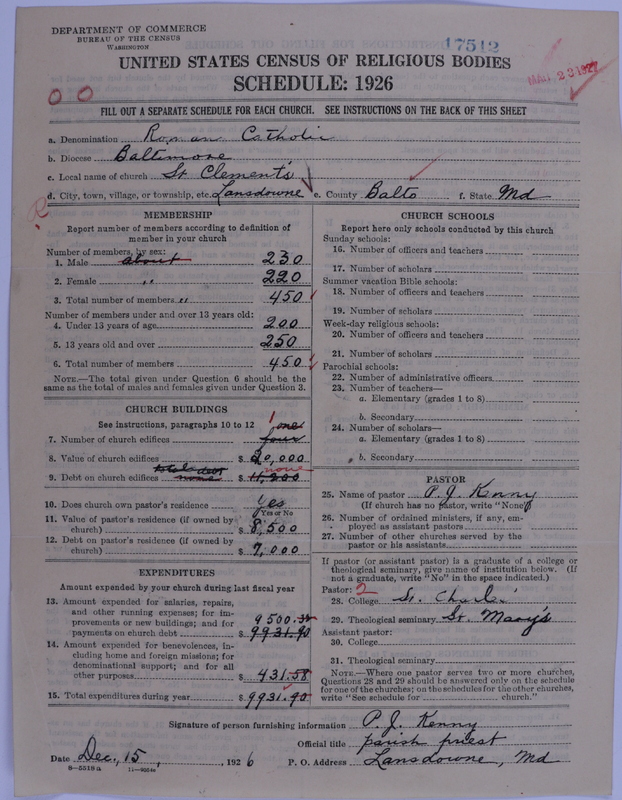 DEPARTMENT OF COMMERCE
BUREAU OF THE CENSUS
WASHINGTON
17512
MAR 23 1927
UNITED STATES CENSUS OF RELIGIOUS BODIES
SCHEDULE: 1926
FILL OUT A SEPARATE SCHEDULE FOR EACH CHURCH. SEE INSTRUCTIONS ON THE BACK OF THIS SHEET
a. Denomination Roman Catholic
b. Diocese Baltimore
c. Local name of church St Clement's
d. City, town, village, or township, etc. Lansdowne e. County Balto f. State Md
MEMBERSHIP
Report number of members according to definition of
member in your church
Number of members, by sex:
1. Male about 230
2. Female " 220
3. Total number of members " 450
Number of members under and over 13 years old:
4. Under 13 years of age 200
5. 13 years old and over 250
6. Total number of members 450
NOTE.—The total given under Question 6 should be the
same as the total of males and females given under Question 3.
CHURCH BUILDINGS
See instructions, paragraphs 10 to 12 1 one
7. Number of church edifices four
8. Value of church edifices $ 20,000
total debt none
9. Debt on church edifices none $ 11,200
10. Does church own pastor's residence Yes
Yes or No
11. Value of pastor's residence (if owned by
church) $ 8,500
12. Debt on pastor's residence (if owned by
church) $ 7,000
EXPENDITURES
Amount expended by your church during last fiscal year
13. Amount expended for salaries, repairs,
and other running expenses; for im-
provements or new buildings; and for 9500.32
payments on church debt $ 9931.90
14. Amount expended for benevolences, in-
cluding home and foreign missions; for
denominational support; and for all
other purposes $ 431.58
15. Total expenditures during year $ 9931.90
CHURCH SCHOOLS
Report here only schools conducted by this church
Sunday schools:
16. Number of officers and teachers
17. Number of scholars
Summer vacation Bible schools:
18. Number of officers and teachers
19. Number of scholars
Week-day religious schools:
20. Number of officers and teachers
21. Number of scholars
Parochial schools:
22. Number of administrative officers
23. Number of teachers—
a. Elementary (grades 1 to 8)
b. Secondary
24. Number of scholars—
a. Elementary (grades 1 to 8)
b. Secondary
PASTOR
25. Name of pastor P. J. Kenny
(If church has no pastor, write "None")
26. Number of ordained ministers, if any, em-
ployed as assistant pastors
27. Number of other churches served by the
pastor or his assistants
If pastor (or assistant pastor) is a graduate of a college or
theological seminary, give name of institution below. (If
not a graduate, write "No" in the space indicated.)
Pastor: 2
28. College St. Charles'
29. Theological seminary St. Mary's
Assistant pastor:
30. College
31. Theological seminary
NOTE.—Where one pastor serves two or more churches,
Questions 28 and 29 should be answered only on the schedule
for one of the churches; on the schedules for the other churches,
write "See schedule for church."
Signature of person furnishing information P. J. Kenny
Official title parish priest
Date Dec, 15, 1926 P. O. Address Lansdowne, Md
8—5519a